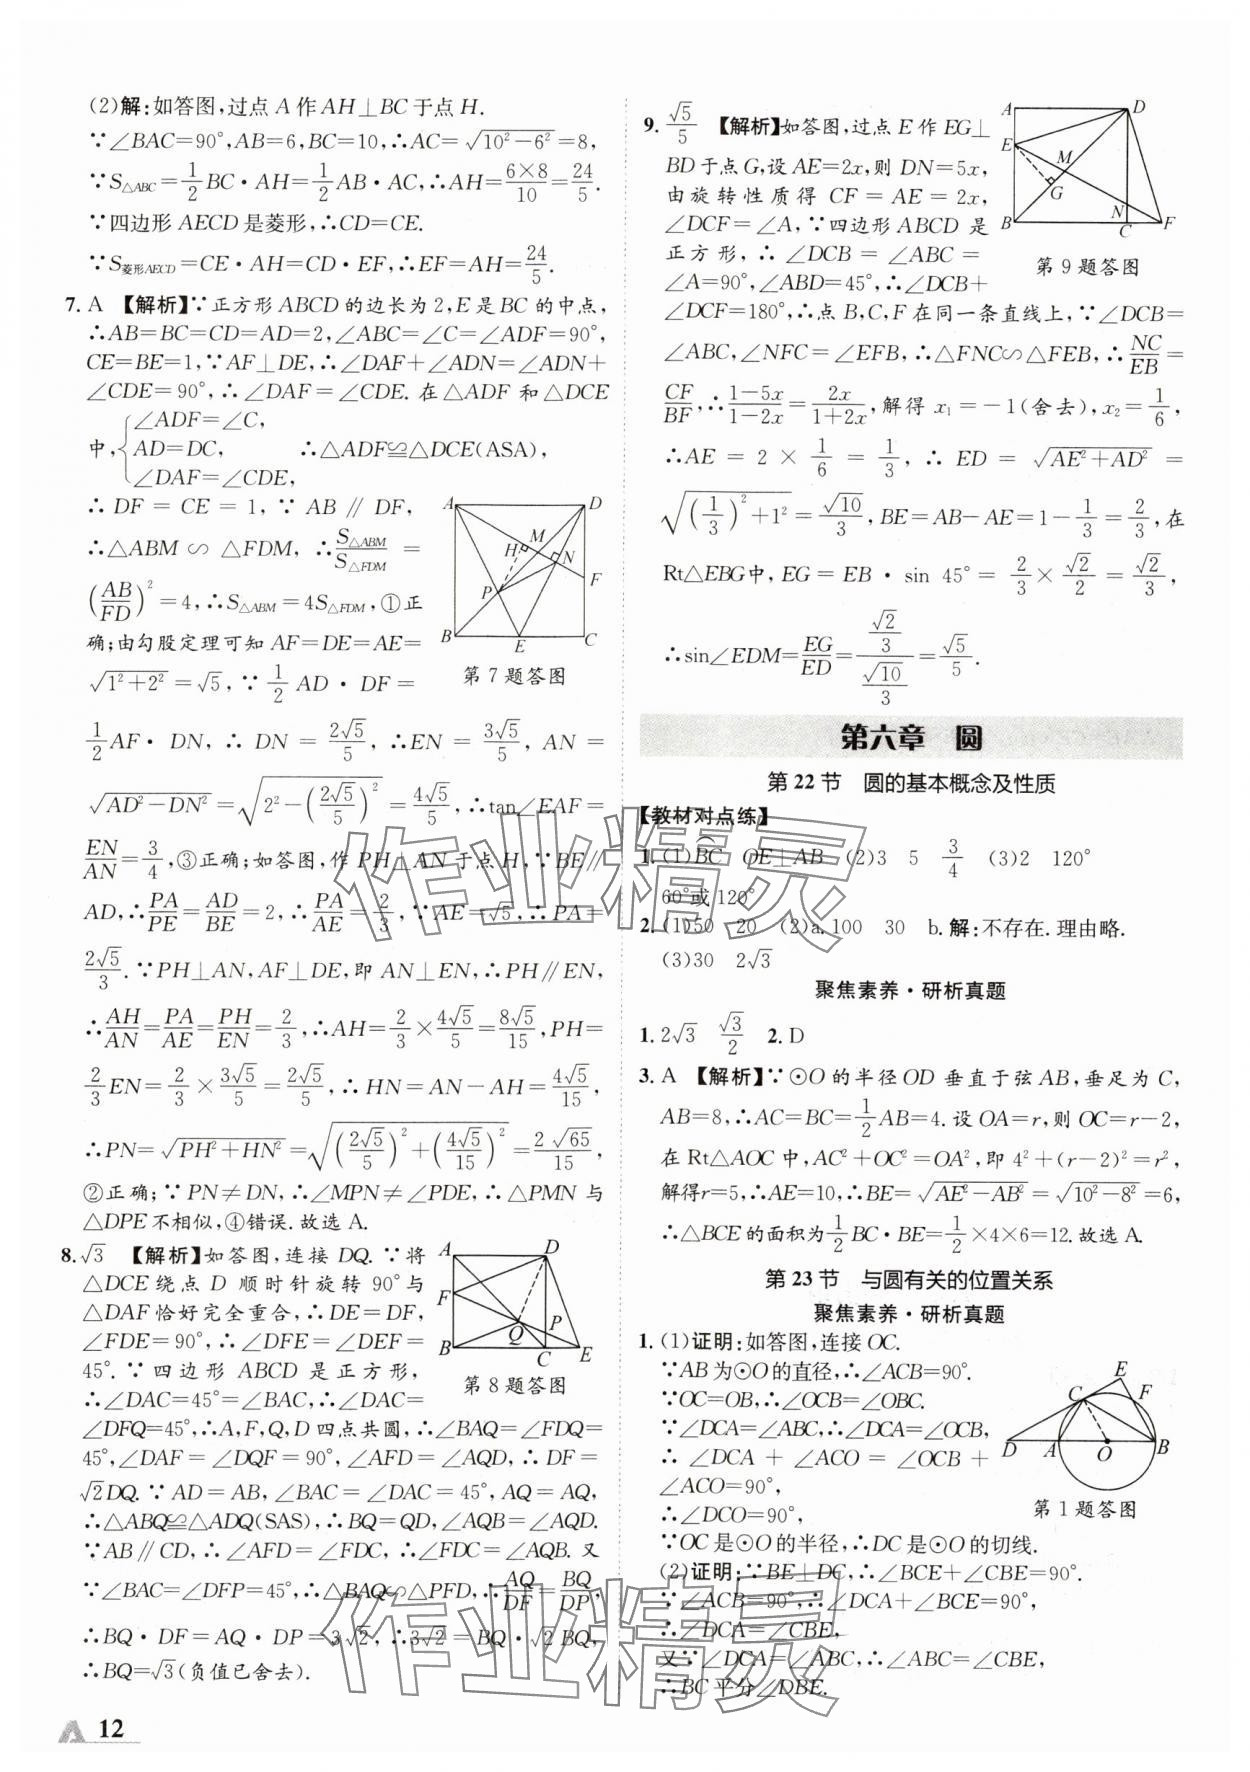 (2)解:如答图,过点 A 作 AH⊥BC 于点 H.
∵∠BAC=90°,AB=6,BC=10,∴AC=√(10²-6²)=8,
∵S△ABC=1/2 BC·AH=1/2 AB·AC,∴AH=(6×8)/10=24/5.
∵四边形 AECD 是菱形,∴CD=CE.
∵S菱形AECD=CE·AH=CD·EF,∴EF=AH=24/5.
7. A 【解析】∵正方形 ABCD 的边长为 2,E 是 BC 的中点,
∴AB=BC=CD=AD=2,∠ABC=∠C=∠ADF=90°,
CE=BE=1,∵AF⊥DE,∴∠DAF+∠ADN=∠ADN+
∠CDE=90°,∴∠DAF=∠CDE.在△ADF 和△DCE
中,{∠ADF=∠C,
AD=DC,
∠DAF=∠CDE,
∴△ADF≌△DCE(ASA),
∴DF=CE=1,∵AB∥DF,
∴△ABM∽△FDM,∴S△ABM/S△FDM=
(AB/FD)²=4,∴S△ABM=4S△FDM,①正
确;由勾股定理可知 AF=DE=AE=
√(1²+2²)=√5,∵1/2 AD·DF=
1/2 AF·DN,∴DN=2√5/5,∴EN=3√5/5,AN=
√(AD²-DN²)=√(2²-(2√5/5)²)=4√5/5,∴tan∠EAF=
EN/AN=3/4,③正确;如答图,作 PH⊥AN 于点 H,∵BE∥
AD,∴PA/PE=AD/BE=2,∴PA/AE=2/3,∵AE=√5,∴PA=
2√5/3.∵PH⊥AN,AF⊥DE,即 AN⊥EN,∴PH∥EN,
∴AH/AN=PA/AE=PH/EN=2/3,∴AH=2/3×4√5/5=8√5/15,PH=
2/3 EN=2/3×3√5/5=2√5/5,∴HN=AN-AH=4√5/15,
∴PN=√(PH²+HN²)=√((2√5/5)²+(4√5/15)²)=2√65/15,
②正确;∵PN≠DN,∴∠MPN≠∠PDE,∴△PMN 与
△DPE 不相似,④错误.故选 A.
A D H M N P F B E C
第 7 题答图
8. √3 【解析】如答图,连接 DQ.∵将
△DCE 绕点 D 顺时针旋转 90°与
△DAF 恰好完全重合,∴DE=DF,
∠FDE=90°,∴∠DFE=∠DEF=
45°.∵四边形 ABCD 是正方形,
∴∠DAC=45°=∠BAC,∴∠DAC=
∠DFQ=45°,∴A,F,Q,D 四点共圆,∴∠BAQ=∠FDQ=
45°,∠DAF=∠DQF=90°,∠AFD=∠AQD,∴DF=
√2DQ.∵AD=AB,∠BAC=∠DAC=45°,AQ=AQ,
∴△ABQ≌△ADQ(SAS),∴BQ=QD,∠AQB=∠AQD.
∵AB∥CD,∴∠AFD=∠FDC,∴∠FDC=∠AQB.又
∵∠BAC=∠DFP=45°,∴△BAQ∽△PFD,∴AQ/DF=BQ/DP,
∴BQ·DF=AQ·DP=3√2,∴3√2=BQ·√2BQ,
∴BQ=√3(负值已舍去).
A D F P Q B C E
第 8 题答图
12
9. √5/5 【解析】如答图,过点 E 作 EG⊥
BD 于点 G,设 AE=2x,则 DN=5x,
由旋转性质得 CF=AE=2x,
∠DCF=∠A,∵四边形 ABCD 是
正方形,∴∠DCB=∠ABC=
∠A=90°,∠ABD=45°,∴∠DCB+
∠DCF=180°,∴点 B,C,F 在同一条直线上,∵∠DCB=
∠ABC,∠NFC=∠EFB,∴△FNC∽△FEB,∴NC/EB=
CF/BF,∴(1-5x)/(1-2x)=2x/(1+2x),解得 x₁=-1(舍去),x₂=1/6,
∴AE=2×1/6=1/3,∴ED=√(AE²+AD²)=
√((1/3)²+1²)=√10/3,BE=AB-AE=1-1/3=2/3,在
Rt△EBG中,EG=EB·sin 45°=2/3×√2/2=√2/3,
∴sin∠EDM=EG/ED=(√2/3)/(√10/3)=√5/5.
A D E M G N B C F
第 9 题答图
第六章 圆
第 22 节 圆的基本概念及性质
【教材对点练】
1. (1)BC⌒ OE⊥AB (2)3 5 3/4 (3)2 120°
60°或 120°
2. (1)50 20 (2)a.100 30 b.解:不存在.理由略.
(3)30 2√3
聚焦素养·研析真题
1. 2√3 √3/2 2. D
3. A 【解析】∵⊙O 的半径 OD 垂直于弦 AB,垂足为 C,
AB=8,∴AC=BC=1/2 AB=4.设 OA=r,则 OC=r-2,
在 Rt△AOC 中,AC²+OC²=OA²,即 4²+(r-2)²=r²,
解得r=5,∴AE=10,∴BE=√(AE²-AB²)=√(10²-8²)=6,
∴△BCE 的面积为1/2 BC·BE=1/2×4×6=12.故选 A.
第 23 节 与圆有关的位置关系
聚焦素养·研析真题
1. (1)证明:如答图,连接 OC.
∵AB 为⊙O 的直径,∴∠ACB=90°.
∵OC=OB,∴∠OCB=∠OBC.
∵∠DCA=∠ABC,∴∠DCA=∠OCB,
∴∠DCA+∠ACO=∠OCB+
∠ACO=90°,
∴∠DCO=90°,
∵OC 是⊙O 的半径,∴DC 是⊙O 的切线.
(2)证明:∵BE⊥DC,∴∠BCE+∠CBE=90°.
∵∠ACB=90°,∴∠DCA+∠BCE=90°,
∴∠DCA=∠CBE,
又∵∠DCA=∠ABC,∴∠ABC=∠CBE,
∴BC 平分∠DBE.
E C F D A O B
第 1 题答图
作业精灵
作业精灵